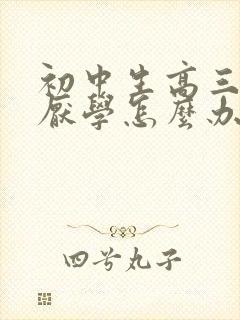 初中生高三
厭學怎麼办
四号丸子